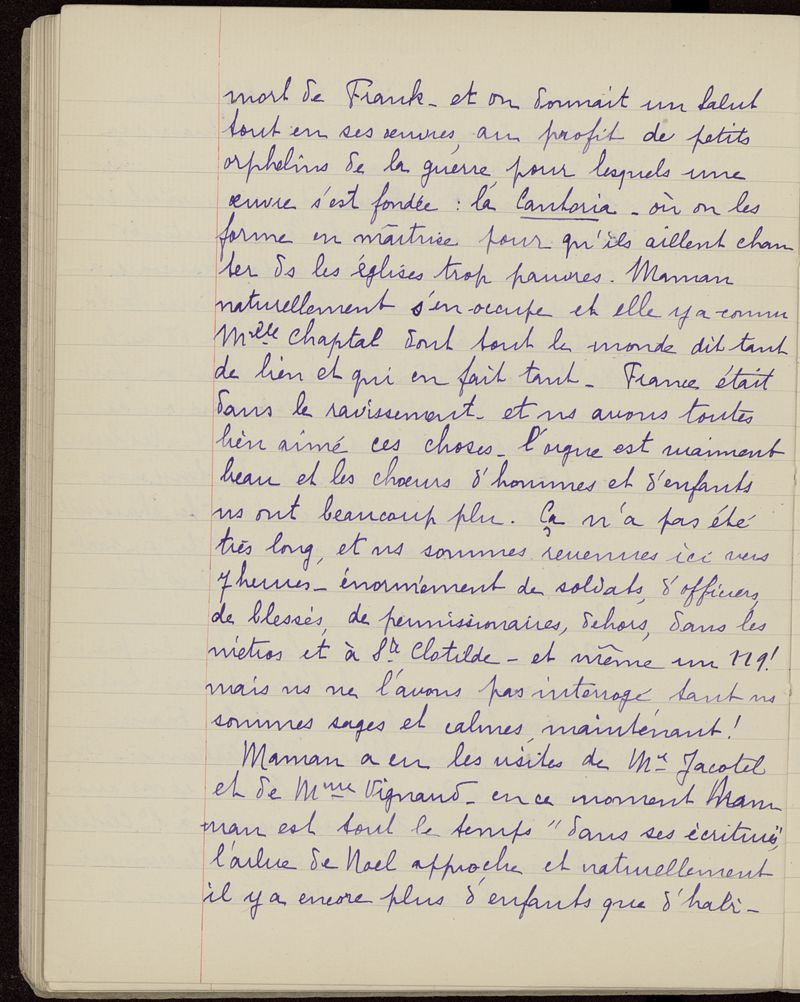 mort de Frank - et on donnait un Salut
tout en ses œuvres, au profit de petits
orphelins de la guerre, pour lesquels une
œuvre s'est fondée : la Cantoria - où on les
forme en maîtrise pour qu'ils aillent chan
ter ds les églises trop pauvres. Maman
naturellement s'en occupe et elle y a connu
Melle Chaptal dont tout le monde dit tant
de bien et qui en fait tant - France était
dans le ravissement - et ns avons toutes
bien aimé ces choses - l'orgue est vraiment
beau et les chœurs d'hommes et d'enfants
ns ont beaucoup plu. Ça n'a pas été
très long, et ns sommes revenues ici vers
7 heures - énormément de soldats, d'officiers,
de blessés, de permissionaires, dehors, dans les
métros et à Ste Clotilde - et même un 119!
mais ns ne l'avons pas interrogé tant ns
sommes sages et calmes, maintenant!
Maman a eu les visites de Mr Jacotel
et de Mme Vignaud - en ce moment Mam
man est tout le temps "dans ses écritures",
l'arbre de Noel approche et naturellement
il y a encore plus d'enfants que d'habi-